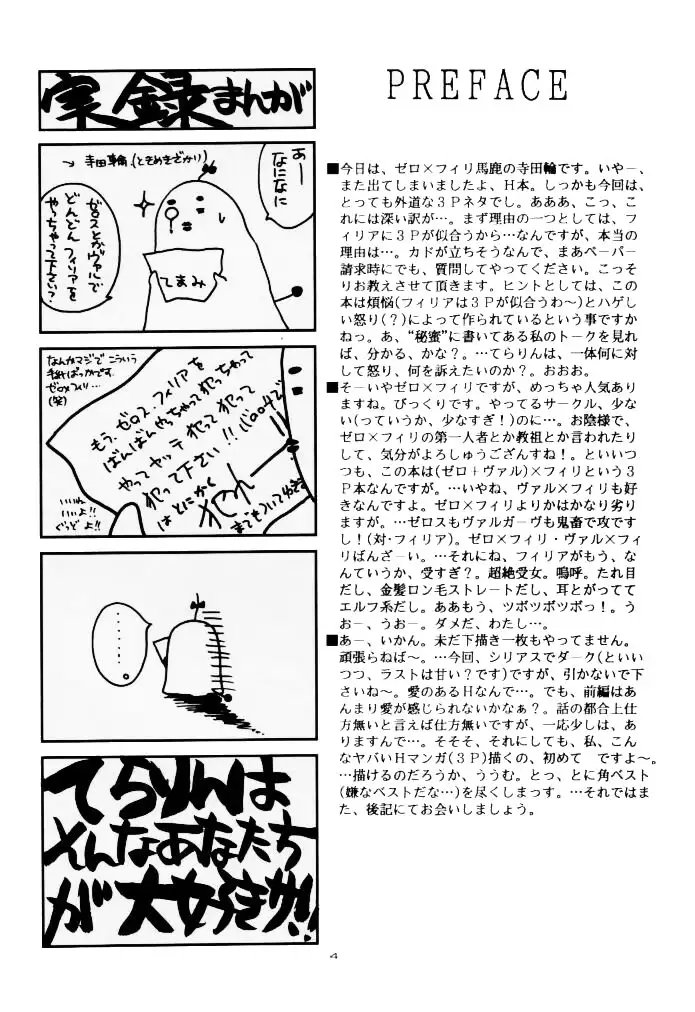 実録まんが
PREFACE
あー
なになに
→ 寺田輪(ときめきざかり)
ゼロスとかヴァルで
どんどんフィリアを
やっちゃって下さい?
てまみ
なんかマジで こういう
手紙ばっかです。
ゼロ×フィリ…
(笑)
もう、ゼロス、フィリアを
ばんばんやっちゃって犯っちゃって
やってヤッテ犯って犯って
犯って下さい!!
はとにかく
犯れ
いいね
いいよ!!
ぐっどよ!!
………
てらりんは
そんなあなたち
が大好きサ!!
■今日は、ゼロ×フィリ馬鹿の寺田輪です。いやー、
また出てしまいましたよ、H本。しっかも今回は、
とっても外道な3Pネタでし。あああ、こっ、こ
れには深い訳が…。まず理由の一つとしては、フ
ィリアに3Pが似合うから…なんですが、本当の
理由は…。カドが立ちそうなんで、まあペーパー
請求時にでも、質問してやってください。こっそ
りお教えさせて頂きます。ヒントとしては、この
本は煩悩(フィリアは3Pが似合うわ～)とハゲし
い怒り(?)によって作られているという事ですか
ねっ。あ、“秘蜜”に書いてある私のトークを見れ
ば、分かる、かな?。…てらりんは、一体何に対
して怒り、何を訴えたいのか?。おおお。
■そーいやゼロ×フィリですが、めっちゃ人気あり
ますね。びっくりです。やってるサークル、少な
い(っていうか、少なすぎ!)のに…。お陰様で、
ゼロ×フィリの第一人者とか教祖とか言われたり
して、気分がよろしゅうござんすね!。といいつ
つも、この本は(ゼロ+ヴァル)×フィリという3
P本なんですが。…いやね、ヴァル×フィリも好
きなんですよ。ゼロ×フィリよりかはかなり劣り
ますが。…ゼロスもヴァルガーヴも鬼畜で攻です
し!(対・フィリア)。ゼロ×フィリ・ヴァル×フィ
リばんざーい。…それにね、フィリアがもう、な
んていうか、受すぎ?。超絶受女。嗚呼。たれ目
だし、金髪ロン毛ストレートだし、耳とがってて
エルフ系だし。ああもう、ツボツボツボっ!。う
おー、うおー。ダメだ、わたし…。
■あー、いかん。未だ下描き一枚もやってません。
頑張らねば～。…今回、シリアスでダーク(といい
つつ、ラストは甘い?です)ですが、引かないで下
さいね～。愛のあるHなんで…。でも、前編はあ
んまり愛が感じられないかなぁ?。話の都合上仕
方無いと言えば仕方無いですが、一応少しは、あ
りますんで…。そそそ、それにしても、私、こん
なヤバいHマンガ(3P)描くの、初めて ですよ～。
…描けるのだろうか、ううむ。とっ、とに角ベスト
(嫌なベストだな…)を尽くしまっす。…それではま
た、後記にてお会いしましょう。
4